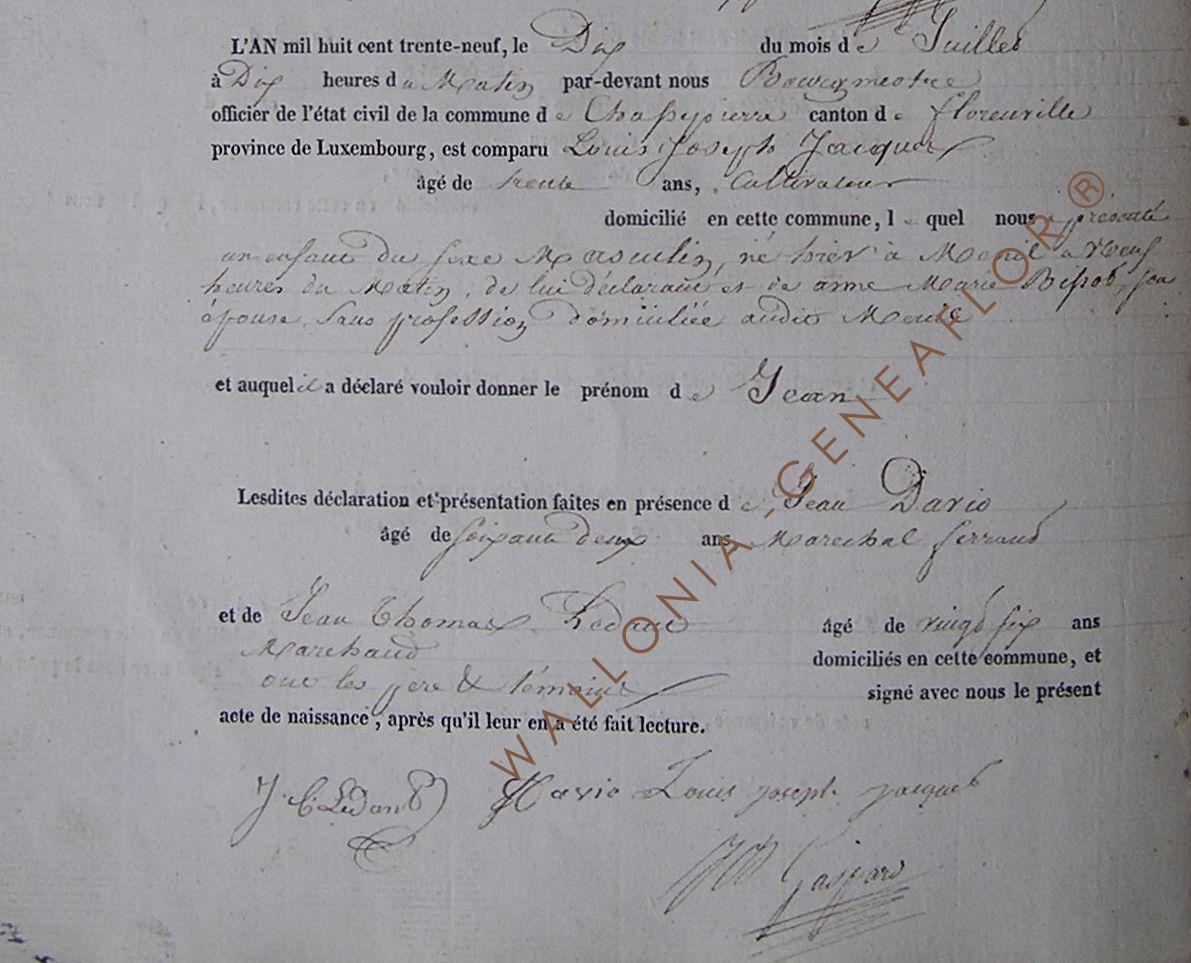 L'AN mil huit cent trente-neuf, le Dix du mois de Juillet
à Dix heures du Matin par-devant nous Bourgmestre
officier de l'état civil de la commune de Chassepierre canton de florenville
province de Luxembourg, est comparu Louis Joseph Jacques
âgé de trente ans, Cultivateur
domicilié en cette commune, le quel nous a présenté
un enfant du sexe Masculin, né hier à Menil à Neuf
heures du Matin, de lui déclarant et de anne Marie son
épouse, Sans profession domiciliée audit
et auquel il a déclaré vouloir donner le prénom de Jean
Lesdites déclaration et présentation faites en présence de Jean Davio
âgé de soixante deux ans Marechal ferrand
et de Jean Thomas âgé de vingt six ans
Marchand domiciliés en cette commune, et
ont les père & témoins signé avec nous le présent
acte de naissance, après qu'il leur en a été fait lecture.
Davio Louis joseph jacques
Gaspard
WALLONIA - GENEAFLOR ®